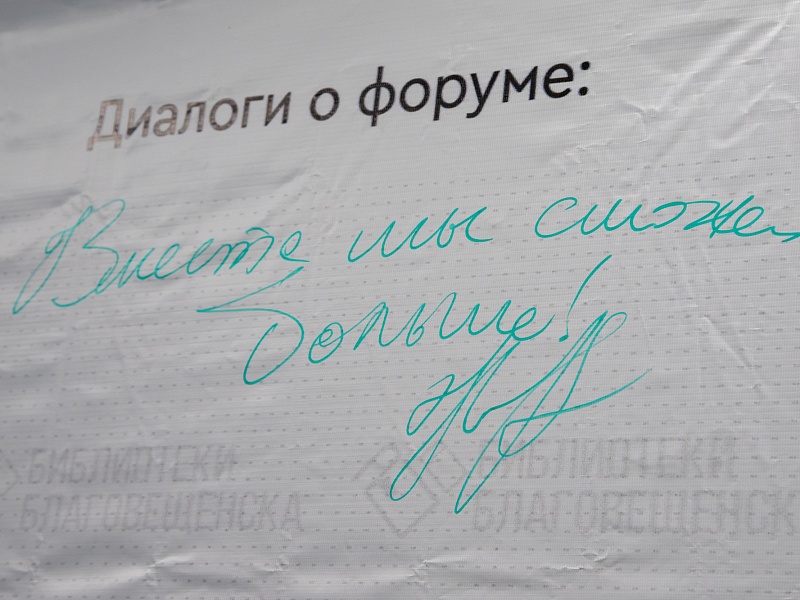 Диалоги о форуме:
Вместе мы сможем
больше!
БИБЛИОТЕКИ БИБЛИОТЕКИ
БЛАГОВЕЩЕНСКА БЛАГОВЕЩЕНСК